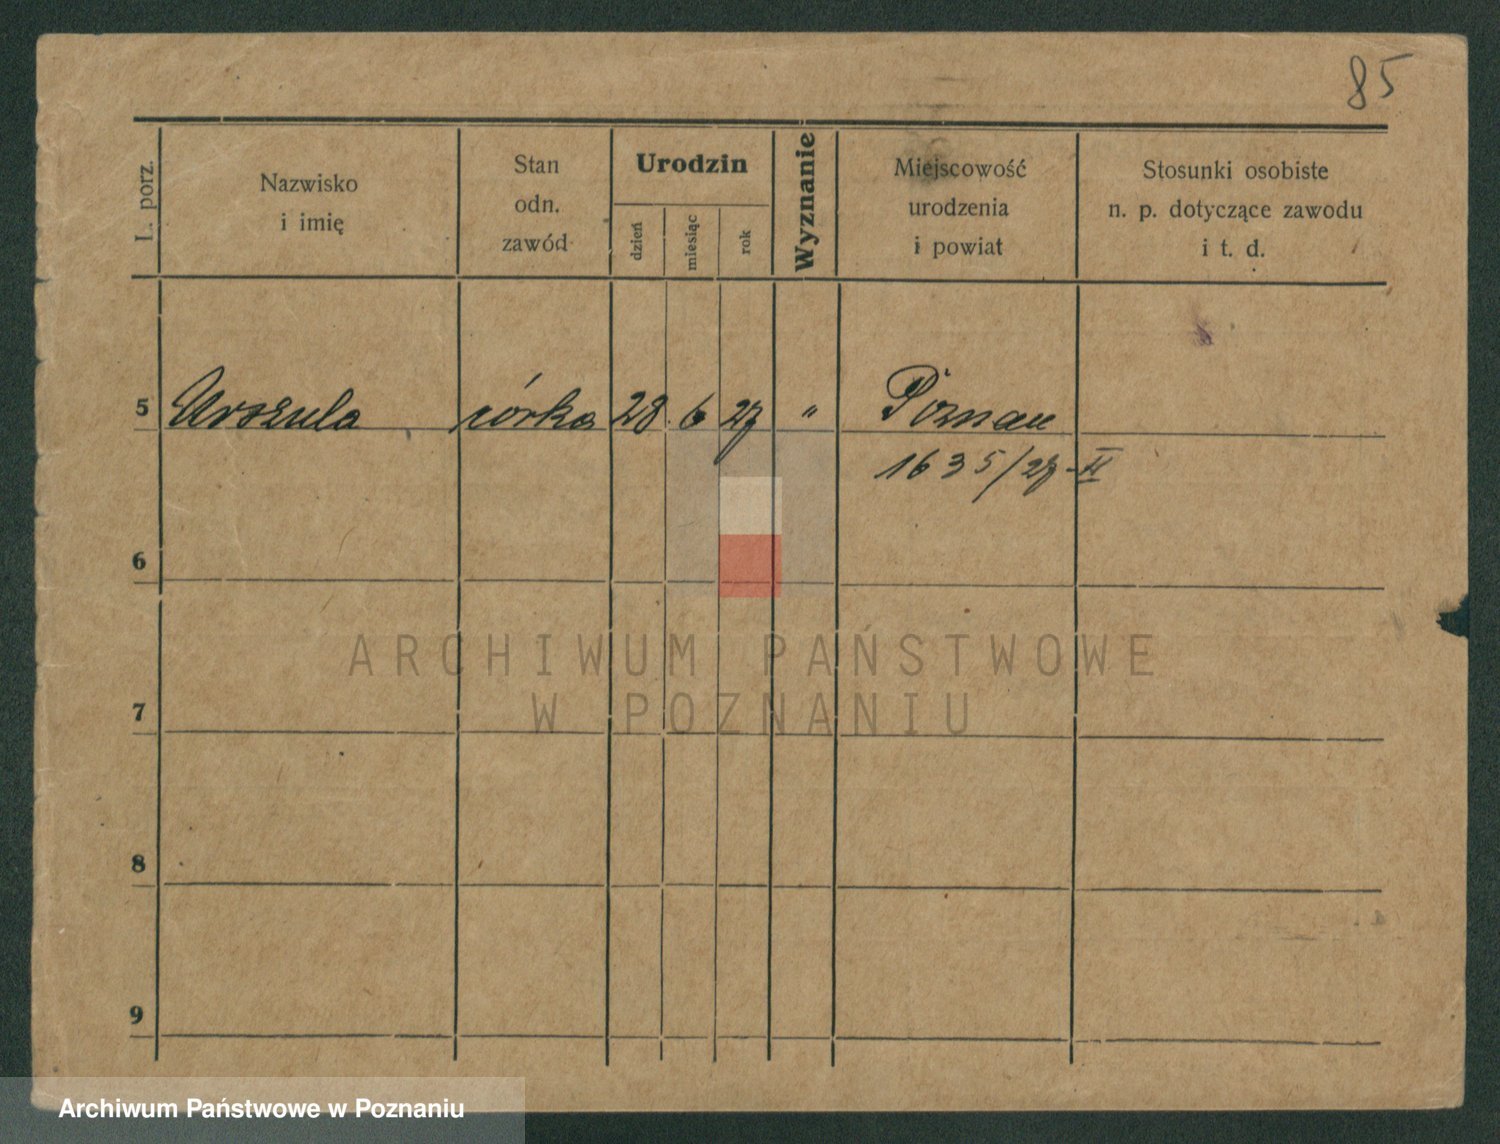 85
L. porz.
Nazwisko
i imię
Stan
odn.
zawód
Urodzin
dzień
miesiąc
rok
Wyznanie
Miejscowość
urodzenia
i powiat
Stosunki osobiste
n. p. dotyczące zawodu
i t. d.
5 Urszula córka 28. 6 27 " Poznań
1635/27-II
6
7
8
9
ARCHIWUM PAŃSTWOWE
W POZNANIU
Archiwum Państwowe w Poznaniu